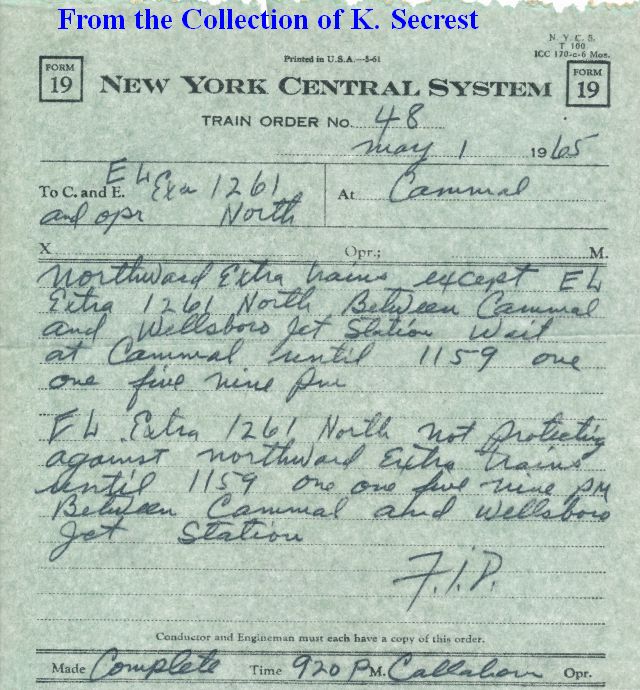 From the Collection of K. Secrest
N. Y. C. S.
T 100
ICC 170-c-6 Mos.
Printed in U.S.A.—5-61
FORM 19
NEW YORK CENTRAL SYSTEM
FORM 19
TRAIN ORDER No. 48
May 1 1965
To C. and E. EL Exa 1261 At Cammal
and opr North
X Opr.; M.
Northward Extra trains except EL
Extra 1261 North Between Cammal
and Wellsboro Jct Station Wait
at Cammal until 1159 one
one five nine pm
EL Extra 1261 North not protecting
against northward Extra trains
until 1159 one one five nine PM
Between Cammal and Wellsboro
Jct Station
Conductor and Engineman must each have a copy of this order.
Made Complete Time 920 P M. Callahan Opr.